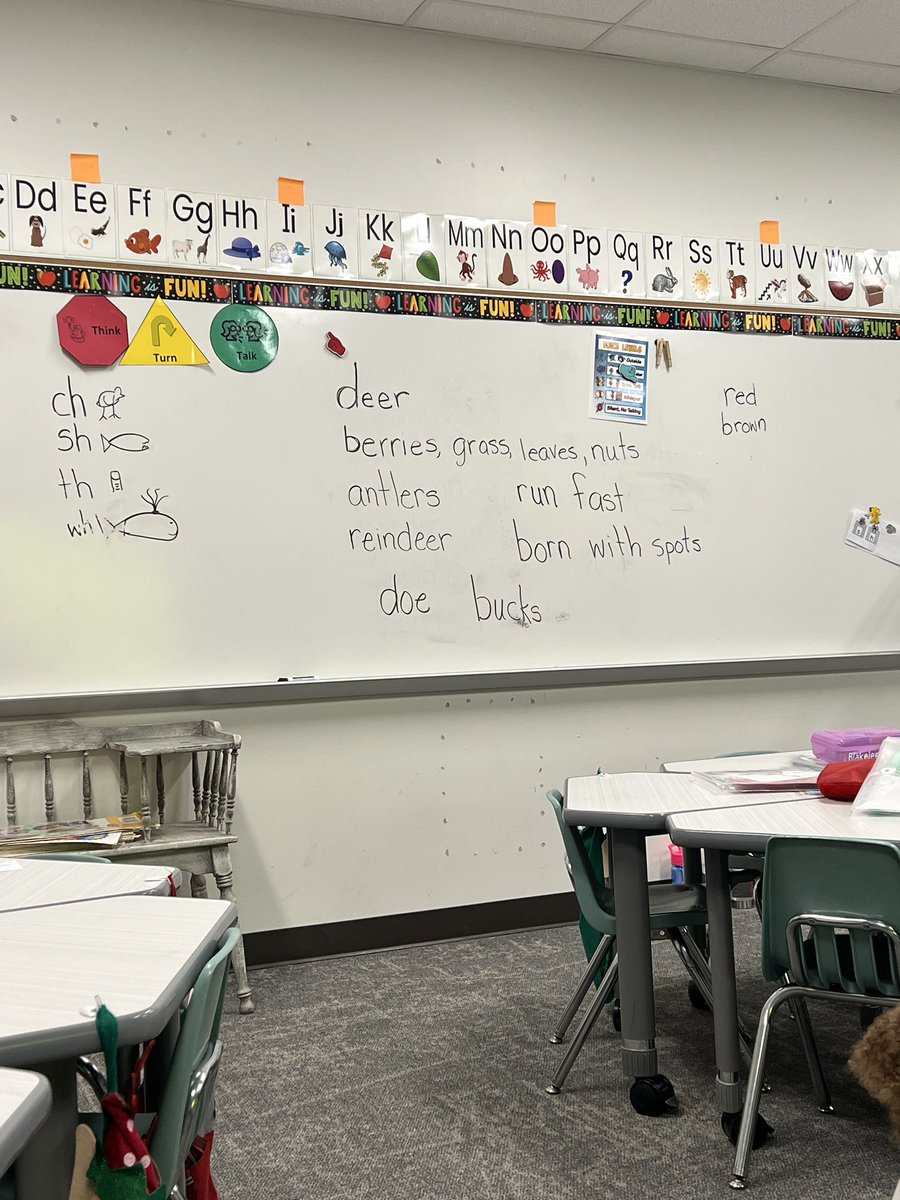 Dd Ee Ff Gg Hh Ii Jj Kk Ll Mm Nn Oo Pp Qq Rr Ss Tt Uu Vv Ww Xx
?
FUN! LEARNING is FUN! LEARNING is FUN! LEARNING is FUN! LEARNING is FUN! LEARNING is FUN! LEARNING is FUN!
Think
Turn
Talk
VOICE LEVELS
Outside
Silent, No Talking
ch
sh
th
wh
deer
berries, grass, leaves, nuts
antlers run fast
reindeer born with spots
doe bucks
red
brown
Blakelee